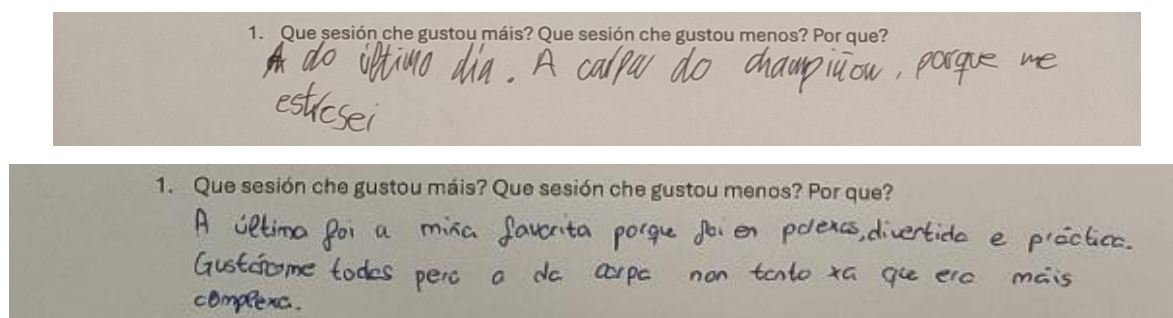 1. Que sesión che gustou máis? Que sesión che gustou menos? Por que?
A do último día. A carpa do champiñon, porque me
estresei
1. Que sesión che gustou máis? Que sesión che gustou menos? Por que?
A última foi a miña favorita porque foi en parexas, divertida e práctica.
Gustáronme todas pero a da carpa non tanto xa que era máis
complexa.